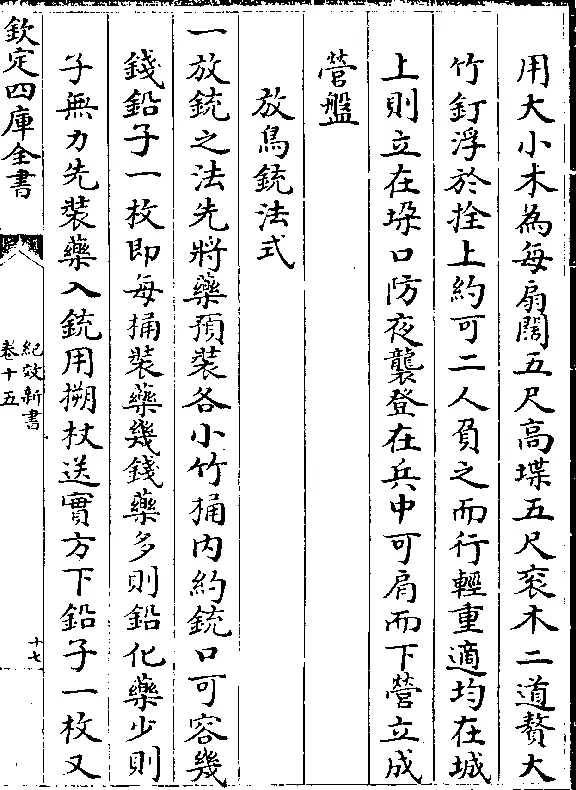 用大小木為每扇闊五尺高堞五尺衮木二道贅大
竹釘浮於拴上約可二人負之而行輕重適均在城
上則立在垜口防夜襲登在兵中可肩而下營立成
營盤
放鳥銃法式
一放銃之法先將藥預裝各小竹桶内約銃口可容幾
錢鉛子一枚即每桶裝藥幾錢藥多則鉛化藥少則
子無力先裝藥入銃用搠杖送實方下鉛子一枚又
欽定四庫全書
紀效新書
卷十五
十七